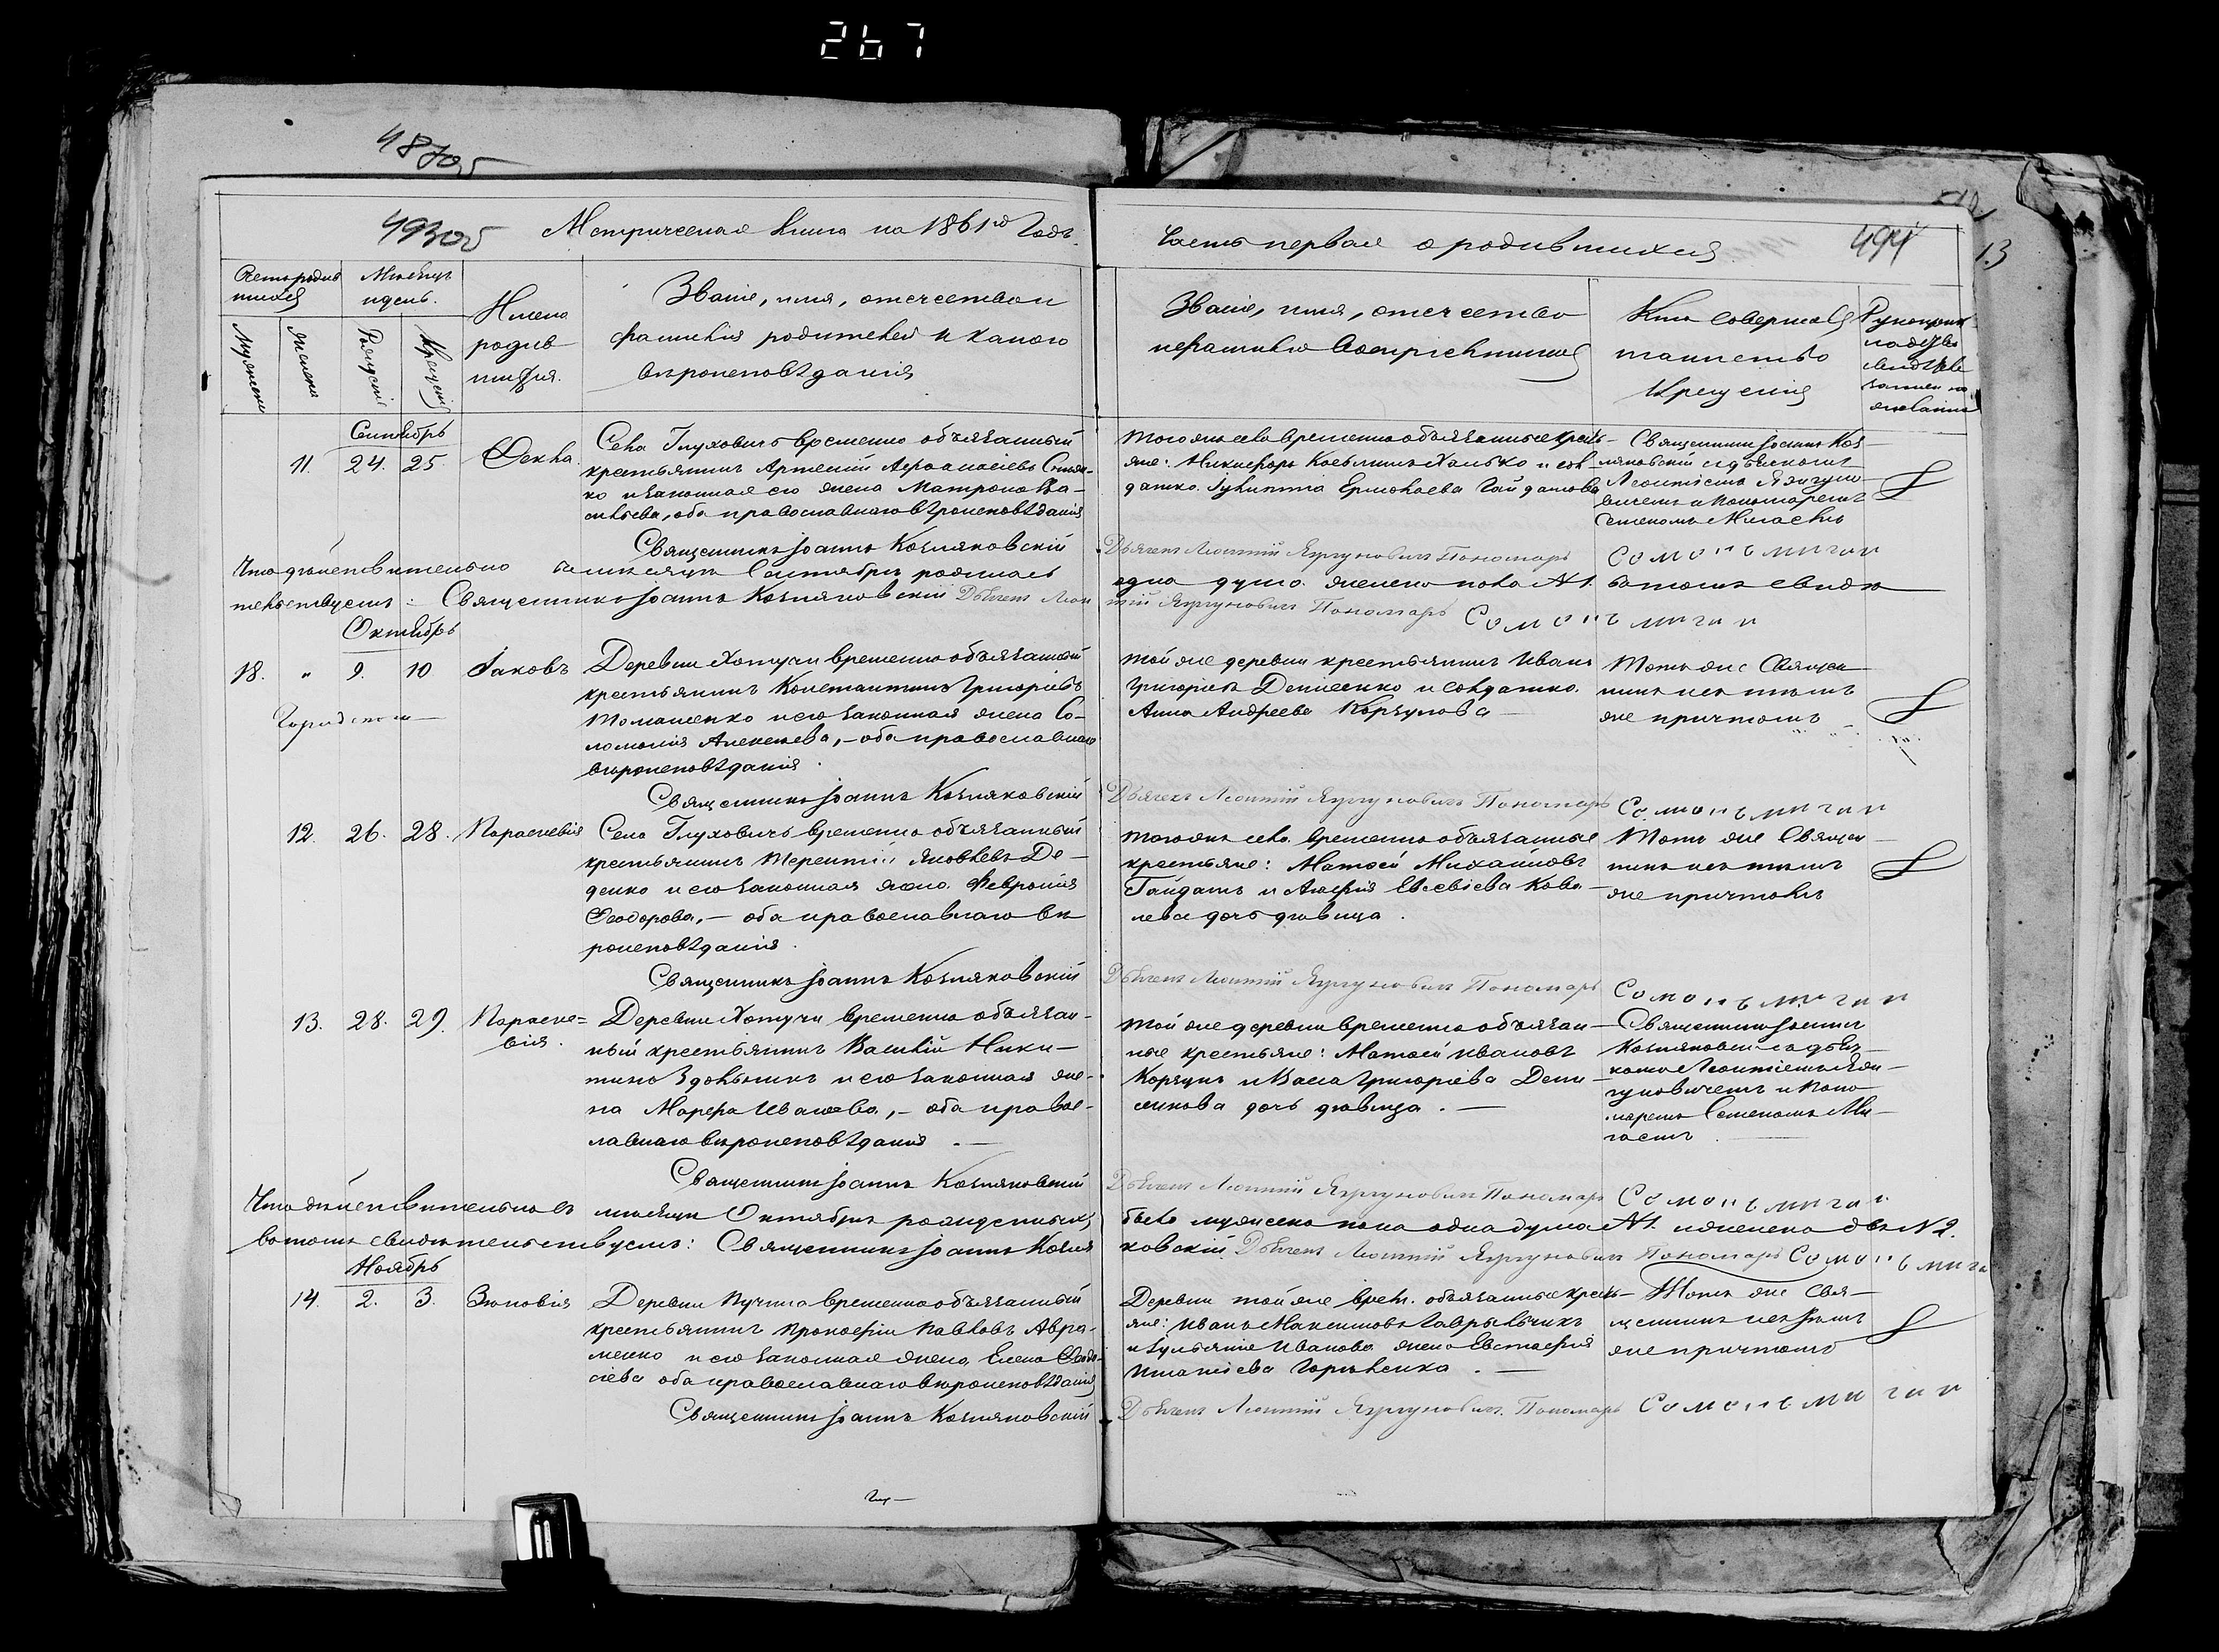 267
487об
493об Метрическая книга на 1861й Годъ.
Часть первая о родившихся 494
13
Счетъ родив
шихся
Мѣсяцъ
и день.
Мужеска
Женска
Рожденія
Крещенія
Имена
родив-
шихся.
Званіе, имя, отечество и
фамилія родителей и какого
вѣроисповѣданія
Званіе, имя, отечество
и фамилія воспріемниковъ
Кто совершалъ
таинство
крещенія
Сентябрь
11. 24. 25. Ѳекла.
Села Глуховичъ временно обязанный
крестьянинъ Артемій Аѳанасіевъ
ко и законная его жена Матрона Ва-
сильева, оба православнаго вѣроисповѣданія
Тогоже села временно обязанные кресть-
яне: Никифоръ и сол-
датка Ермолаева Гайдакова
Священникъ Іоаннъ Коз-
ляковскій съ дьячкомъ
Леонтіемъ Яцгуно-
вичемъ и Пономаремъ
Семеномъ Мигаемъ
Священникъ Іоаннъ Козляковскій Дьячекъ Леонтій Яцгуновичъ Пономарь Семонъ мигай
Что дѣйствительно въ мѣсяцѣ Сентябрѣ родилась одна душа женска пола №1. въ томъ свидѣ
тельствуемъ: Священникъ Іоаннъ Козляковскій Дьячекъ Леон
тій Яцгуновичъ Пономарь Семонъ мигай
Октябрь
18. " 9. 10 Іаковъ
Деревни Хотучи временно обязанный
крестьянинъ Константинъ Григоріевъ
Томашенко и его законная жена Со-
ломонія Алексѣева, - оба православнаго
вѣроисповѣданія.
Той же деревни крестьянинъ Иванъ
Григорьевъ Денисенко и солдатка
Анна Андреева Корзунова
Тотъ же Священ
никъ и съ тѣмъ
же причтомъ
Священникъ Іоаннъ Козляковскій Дьячекъ Леонтій Яцгуновичъ Пономарь Семонъ мигай
12. 26. 28. Параскевія
Села Глуховичъ временно обязанный
крестьянинъ Терентій Яковлевъ Де-
денко и его законная жена Февронія
Ѳеодорова, - оба православнаго вѣ
роисповѣданія.
Тогоже села временно обязанные
крестьяне: Матѳей Михайловъ
Гайдакъ и Агафія Евсевіева Кова
лева дочь дѣвица.
Тотъ же Священ
никъ и съ тѣмъ
же причтомъ
Священникъ Іоаннъ Козляковскій Дьячекъ Леонтій Яцгуновичъ Пономарь Семонъ мигай
13. 28. 29. Параске=
вія.
Деревни Хотучи временно обязан-
ный крестьянинъ Василій Ники-
тинъ и его законная же-
на Марѳа Иванова, - оба правос-
лавнаго вѣроисповѣданія. -
Той же деревни временно обязан-
ные крестьяне: Матѳей Ивановъ
Корзунъ и Васса Григоріева Дени-
сенкова дочь дѣвица. -
Священникъ Іоаннъ
Козляковскій съ дьяч
комъ Леонтіемъ Яц-
гуновичемъ и Поно
маремъ Семеномъ Ми-
гаемъ
Священникъ Іоаннъ Козляковскій Дьячекъ Леонтій Яцгуновичъ Пономарь Семонъ мигай
Что дѣйствительно въ мѣсяцѣ Октябрѣ рожденныхъ было мужеска пола одна душа №1. и женска двѣ №2.
въ томъ свидѣтельствуемъ: Священникъ Іоаннъ Козля
ковскій Дьячекъ Леонтій Яцгуновичъ Пономарь Семонъ мига
Ноябрь
14. 2. 3. Зиновія
Деревни временно обязанный
крестьянинъ Прокофій Павловъ Авра-
менко и его законная жена Елена
оба православнаго вѣроисповѣданія
Деревни той же врем. обязанные кресть-
яне: Иванъ Максимовъ Гаврильчикъ
и Иванова жена Евстафія
Игнатіева Горленка. -
Тотъ же Свя-
щенникъ и съ тѣмъ
же причтомъ
Священникъ Іоаннъ Козляковскій Дьячекъ Леонтій Яцгуновичъ. Пономарь Семонъ мигай